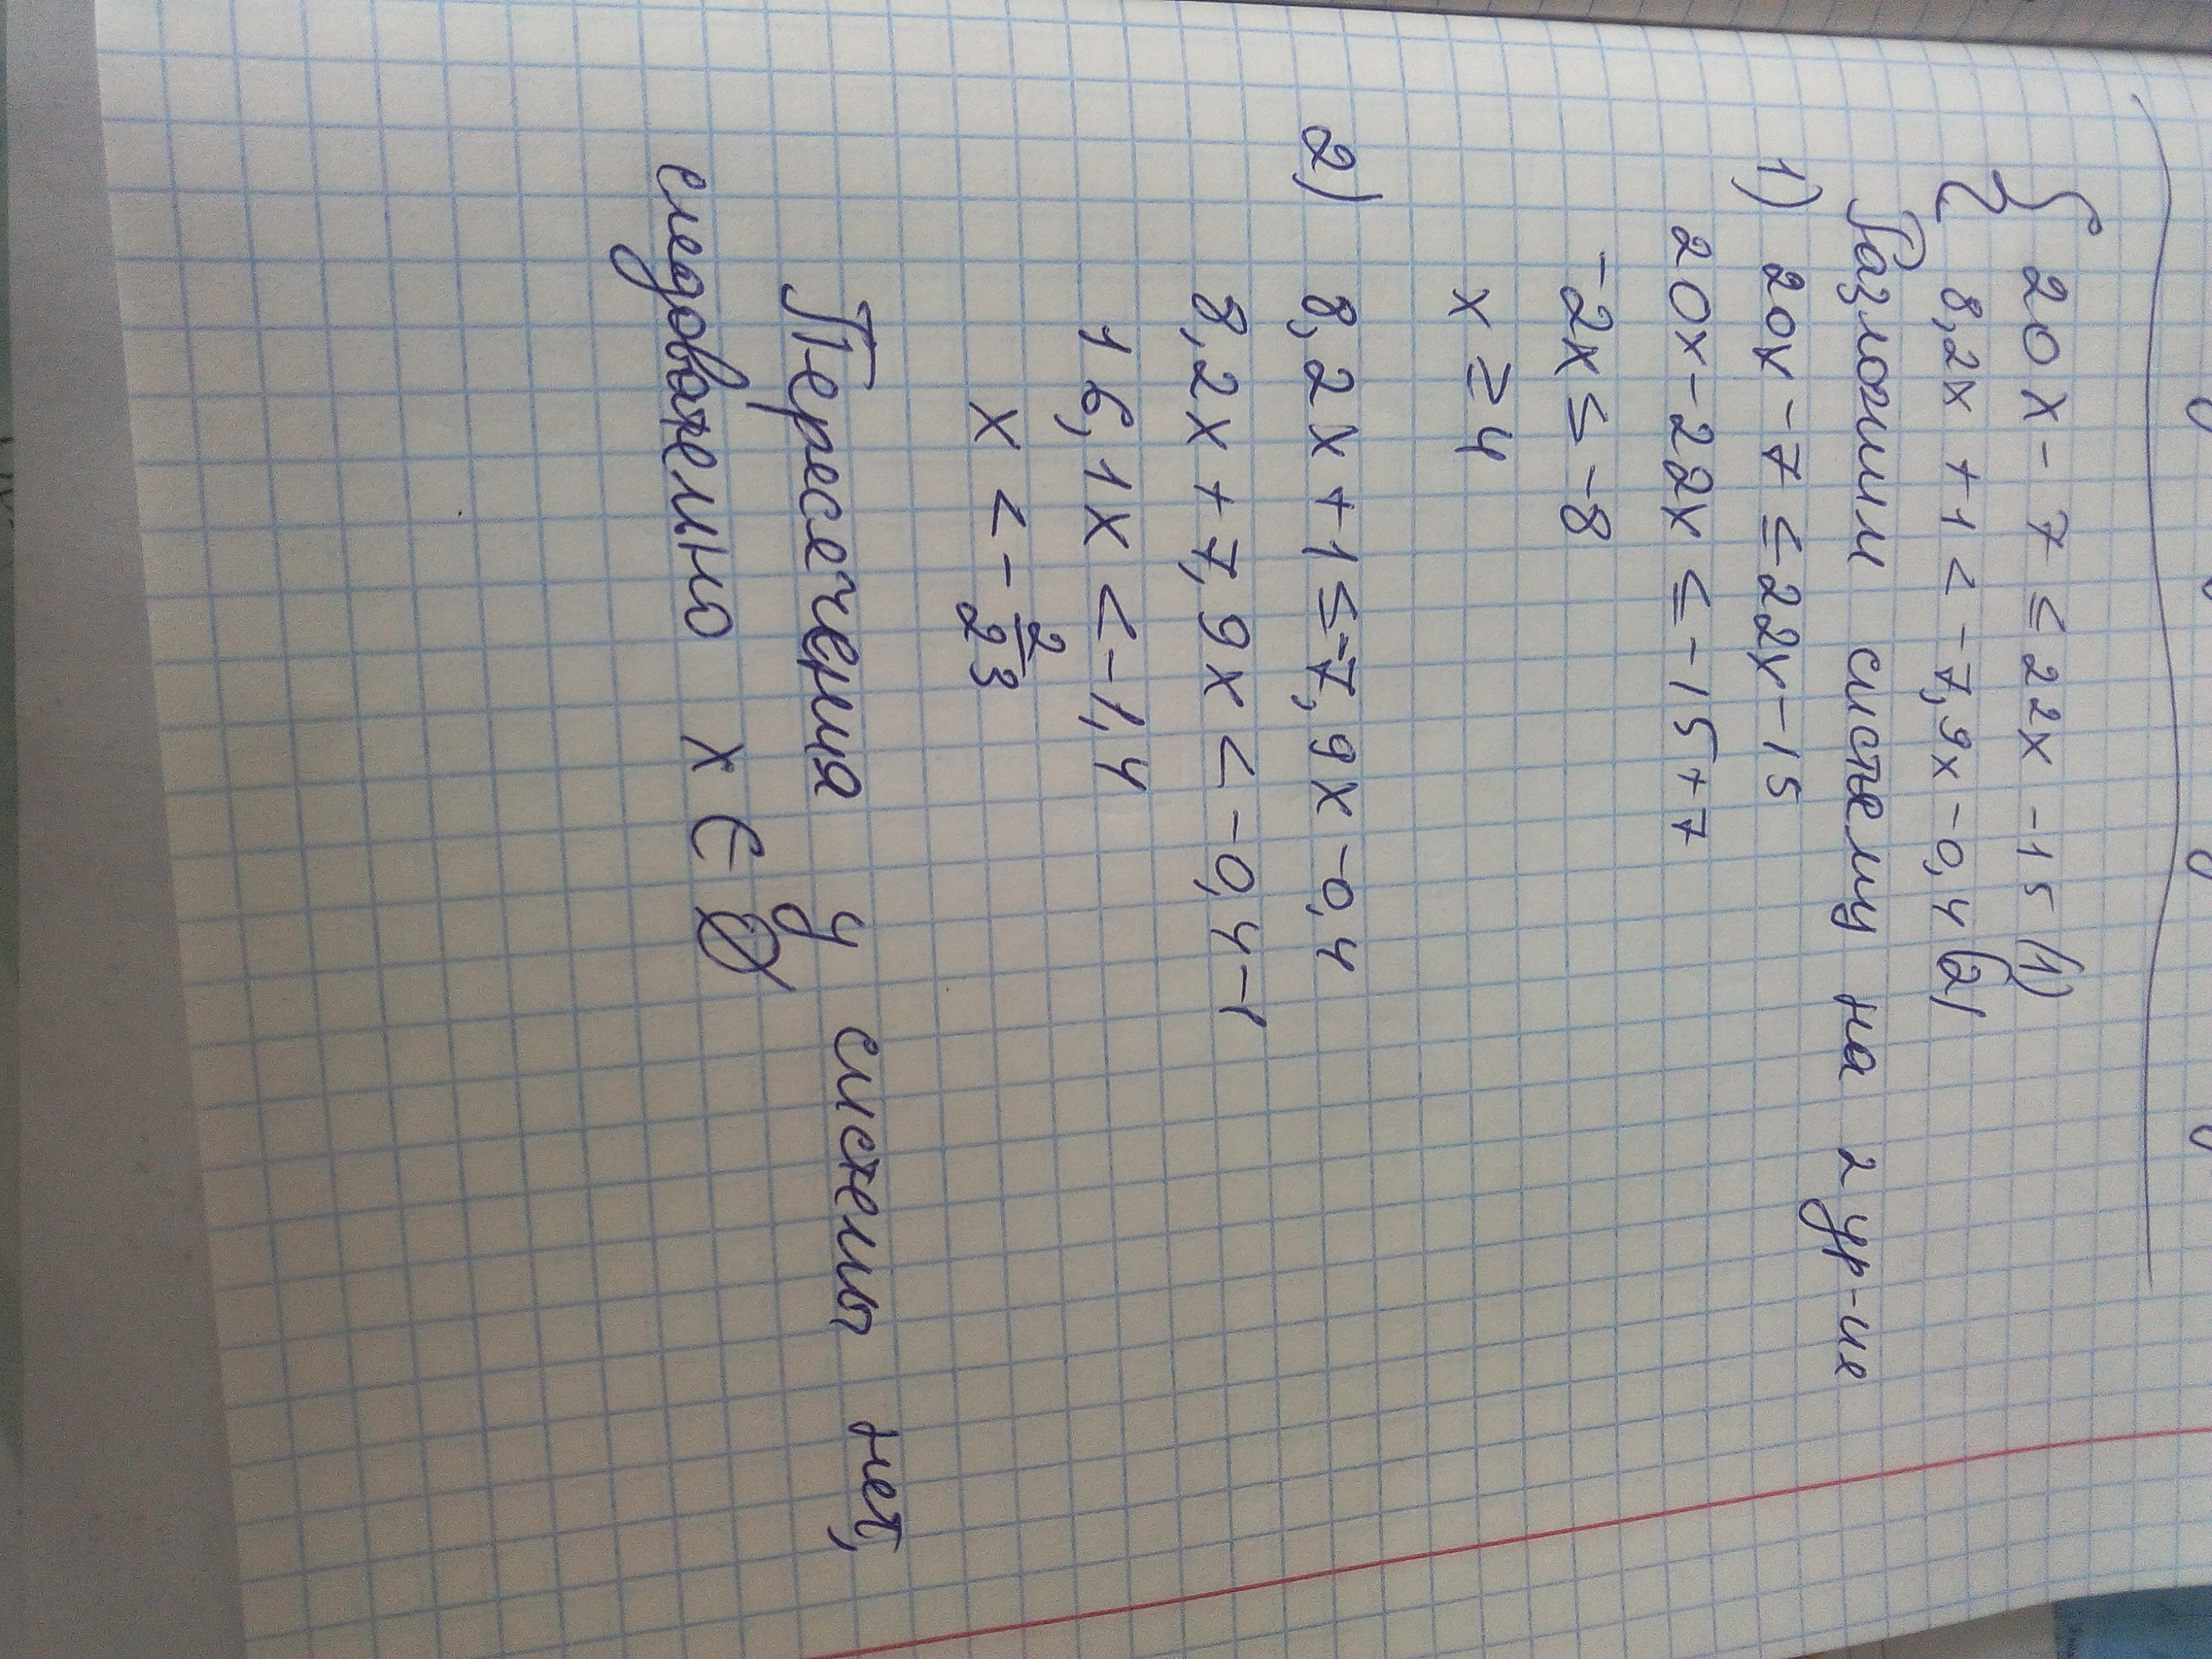 { 20x - 7 ≤ 22x - 15 (1)
8,2x + 1 < -7,9x - 0,4 (2)
Разложим систему на 2 ур-ия
1) 20x - 7 ≤ 22x - 15
20x - 22x ≤ -15 + 7
-2x ≤ -8
x ≥ 4
2) 8,2x + 1 ≤ -7,9x - 0,4
8,2x + 7,9x < -0,4 - 1
16,1x < -1,4
x < - 2/23
Пересечения у системы нет,
следовательно x ∈ ∅